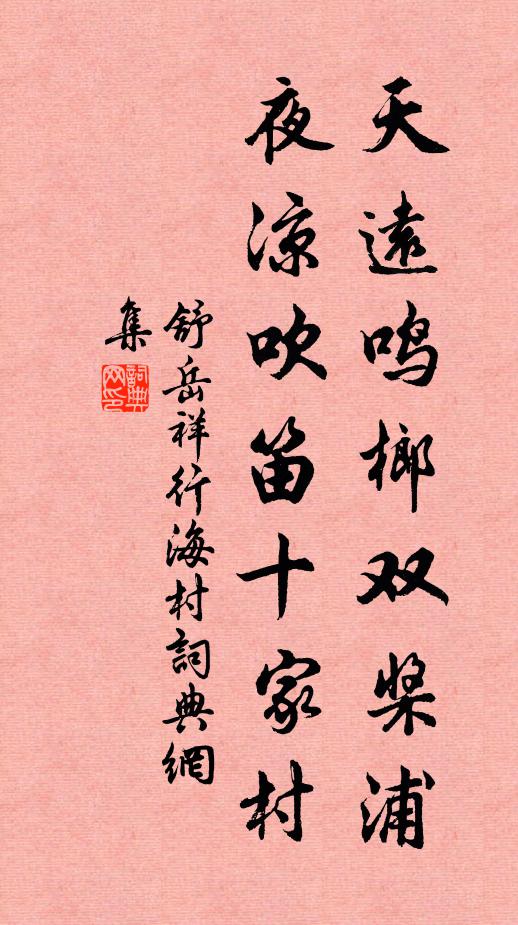 天遠鸣榔双桨浦
夜凉吹笛十家村
舒岳祥行海村詞典網
集
詞典网印